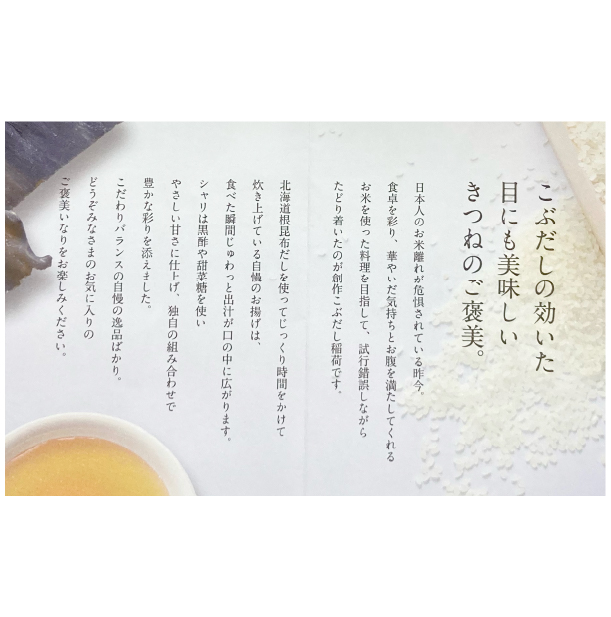 こぶだしの効いた
目にも美味しい
きつねのご褒美。
日本人のお米離れが危惧されている昨今。
食卓を彩り、華やいだ気持ちとお腹を満たしてくれる
お米を使った料理を目指して、試行錯誤しながら
たどり着いたのが創作こぶだし稲荷です。
北海道根昆布だしを使ってじっくり時間をかけて
炊き上げている自慢のお揚げは、
食べた瞬間じゅわっと出汁が口の中に広がります。
シャリは黒酢や甜菜糖を使い
やさしい甘さに仕上げ、独自の組み合わせで
豊かな彩りを添えました。
こだわりバランスの自慢の逸品ばかり。
どうぞみなさまのお気に入りの
ご褒美いなりをお楽しみください。